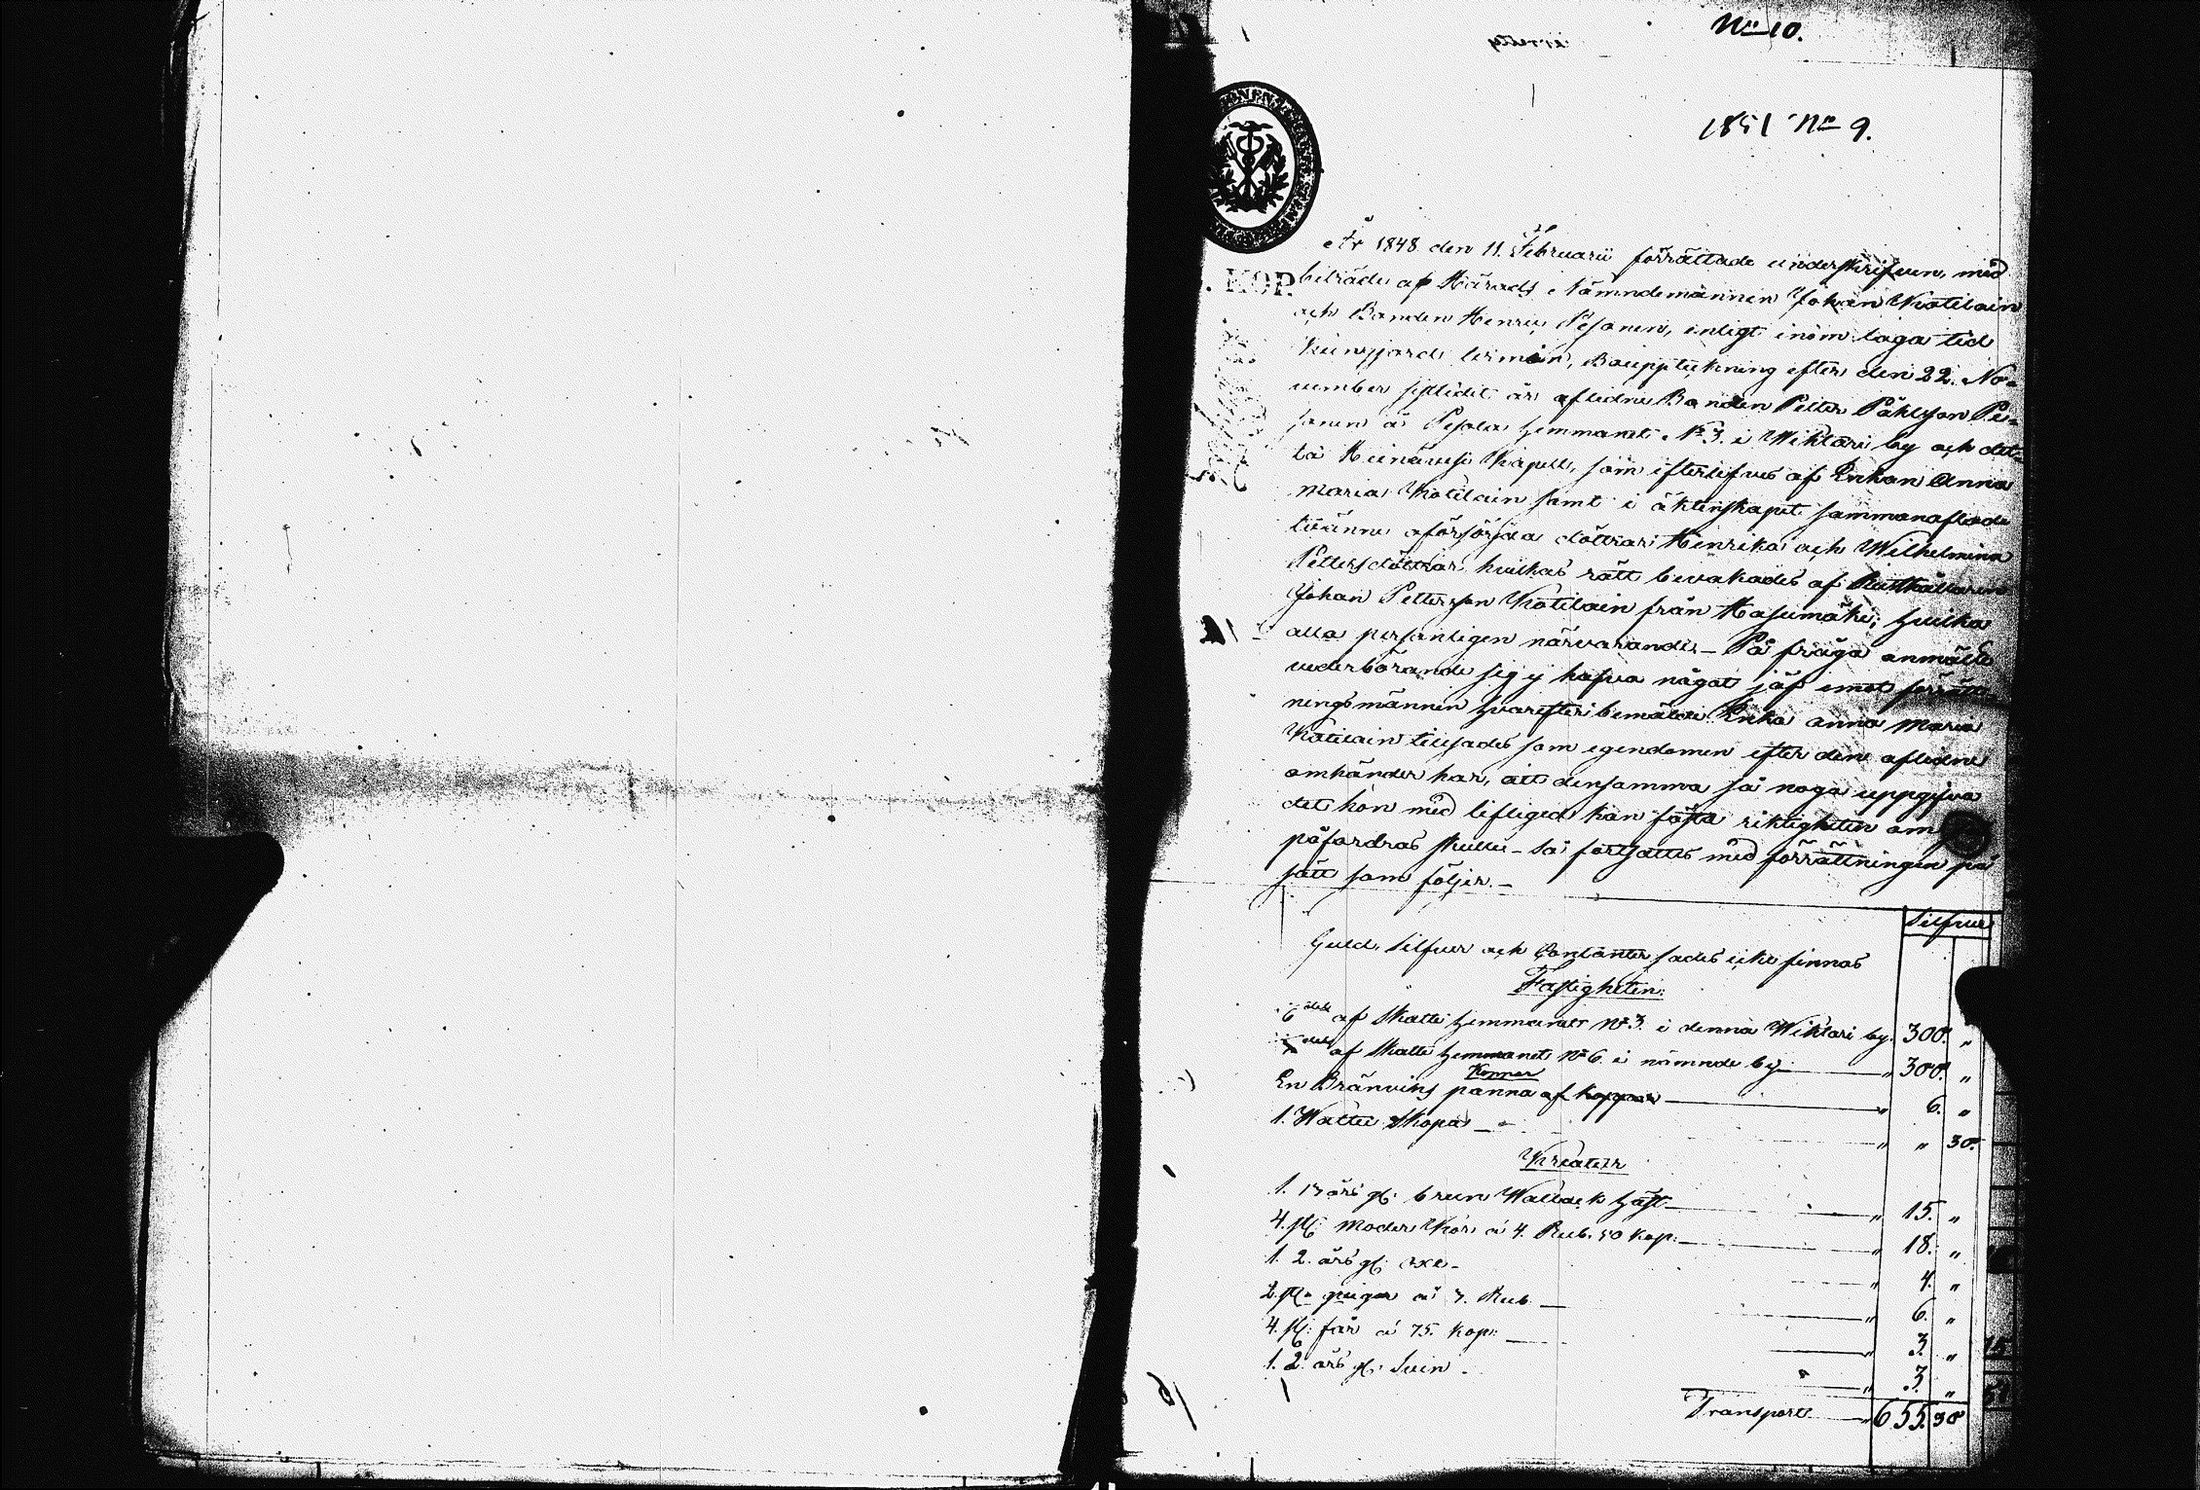 No 10.
1851 No 9.
KOP.
År 1848 den 11. Februarii förrättade underskrifven, med
biträde af Härads Nämndemännen Johan Kotilain
och Bonden Henric Pesonen, enligt inom laga tid
kungjord termin, Bouppteckning efter den 22. No-
vember sistlidit år aflidne Bonden Petter Påhlsson Pe-
sonen å Pesola hemmanet No 3. i Wihtari by och det-
ta Heinävesi Kapell, som efterlefves af Enkan Anna
Maria Kotilain samt i äktenskapet sammanaflade
tvänne oförsörjda döttrar Henrika och Wilhelmina
Pettersdöttrar, hvilkas rätt bevakades af Rusthållaren
Johan Pettersson Kotilain från Hasumäki; hvilka
alla personligen närvarande. – På fråga anmälte
vederbörande sig ej hafva något jäf emot förrätt-
ningsmännen hvarefter bemälde Enka Anna Maria
Kotilain tillsades som egendomen efter den aflidne
omhänder har, att densamma så noga uppgifva
det hon med liflig ed kan fästa riktigheten om
påfordras skulle – Så fortsattes med förrättningen på
sätt som följer. –
Silfver
Guld, Silfver och Contanter sades icke finnas
Fastigheten:
6 dels af Skatte hemmanet No 3. i denna Wihtari by. 300. "
dels af Skatte hemmanet No 6 i nämnde by " 300. "
Koppar
En Bränvins panna af koppar " 6. "
1. Watten Skopa " " 30.
Kreatur
1. 13 års gl: brun Wallack häst " 15. "
4. st: Moder Kor á 4. Rub. 50 Kop: " 18. "
1. 2. års gl: oxe " 4. "
2. st: qvigor á 3. Rub " 6. "
4. st: får á 75. Kop: " 3. "
1. 2 års gl: Svin " 3. "
Transport " 655. 30